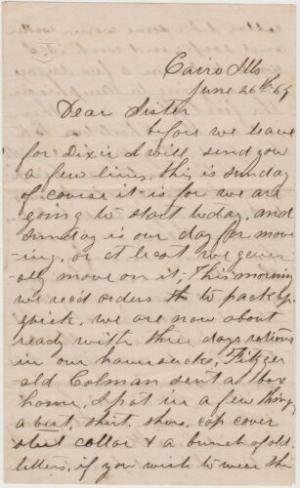 Cairo Ills
June 26th 64
Dear Sister
before we leave
for Dixie I will send you
a few lines, this is sunday
of course it is for we are
going to start today, and
sunday is our day for mov-
ing, or at least we gener-
ally move on it, This morning
we recd orders to pack up
quick. we are now about
ready with three days rations
in our haversacks,
old Colman sent a box
home, I put in a few things,
a shirt. shoes. cap cover
steel collar & a bunch of old
letters, if you wish to wear the